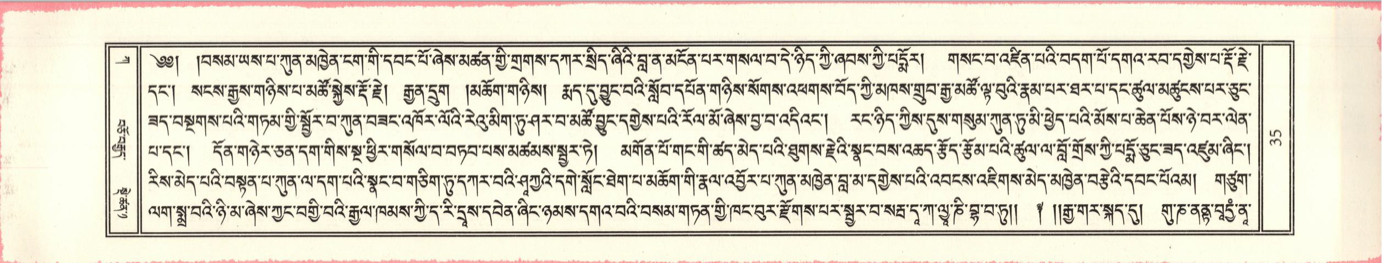 ༄༅། །བསམ་ཡས་པ་ཀུན་མཁྱེན་ངག་གི་དབང་པོ་ཞེས་མཚན་གྱི་གྲགས་དཀར་སྲིད་ཞིའི་བླ་ན་མངོན་པར་གསལ་བ་དེ་ཉིད་ཀྱི་ཞབས་ཀྱི་པདྨོར། གསང་བ་འཛིན་པའི་བདག་པོ་དགའ་རབ་དགྱེས་པ་རྡོ་རྗེ་
དང་། སངས་རྒྱས་གཉིས་པ་མཚོ་སྐྱེས་རྡོ་རྗེ། རྒྱན་དྲུག །མཆོག་གཉིས། རྨད་དུ་བྱུང་བའི་སློབ་དཔོན་གཉིས་སོགས་འཕགས་བོད་ཀྱི་མཁས་གྲུབ་རྒྱ་མཚོ་ལྟ་བུའི་རྣམ་པར་ཐར་པ་དང་ཚུལ་མཚུངས་པར་ཅུང་
ཟད་བསྔགས་པའི་གཏམ་གྱི་སྤྲོར་བ་ཀུན་བཟང་འཁོར་ལོའི་རེའུ་མིག་ཏུ་ཤར་བ་མཚོ་བྱུང་དགྱེས་པའི་རོལ་མོ་ཞེས་བྱ་བ་འདིའང་། རང་ཉིད་ཀྱིས་དུས་གསུམ་ཀུན་ཏུ་མི་ཕྱེད་པའི་མོས་པ་ཆེན་པོས་ཉེ་བར་ལེན་
པ་དང་། དོན་གཉེར་ཅན་དག་གིས་སྔ་ཕྱིར་གསོལ་བ་བཏབ་པས་མཚམས་སྦྱར་ཏེ། མགོན་པོ་གང་གི་ཚད་མེད་པའི་ཐུགས་རྗེའི་སྣང་བས་འཆད་རྩོད་རྩོམ་པའི་ཚུལ་ལ་བློ་གྲོས་ཀྱི་པདྨོ་ཅུང་ཟད་འཛུམ་ཞིང་།
རིས་མེད་པའི་བསྟན་པ་ཀུན་ལ་དག་པའི་སྣང་བ་གཅིག་ཏུ་དཀར་བའི་ཤཱཀྱའི་དགེ་སློང་ཐེག་པ་མཆོག་གི་རྣལ་འབྱོར་པ་ཀུན་མཁྱེན་བླ་མ་དགྱེས་པའི་འབངས་འཇིགས་མེད་མཁྱེན་བརྩེའི་དབང་པོའམ། གཙུག་
ལག་སྨྲ་བའི་ཉི་མ་ཞེས་ཀྱང་བགྱི་བའི་རྒྱལ་ཁམས་ཀྱི་ད་རི་དྲྭས་དབེན་ཞིང་ཉམས་དགའ་བའི་བསམ་གཏན་གྱི་ཁང་བུར་རྫོགས་པར་སྦྱར་བ་སརྦ་དཱ་ཀ་ལྱཱ་ཎི་བྷ་བ་ཏུ།། །།རྒྱ་གར་སྐད་དུ།
ཀ
35